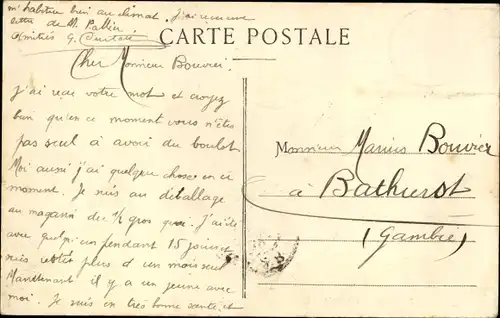 m'habitue bien au climat. J'ai reçu une
lettre de M.
Amitiés G.
CARTE POSTALE
Cher Monsieur Bouvier.
J'ai reçu votre mot et croyez
bien qu'en ce moment vous n'êtes
pas seul à avoir du boulot
Moi aussi j'ai quelque chose en ce
moment. Je suis au déballage
au magasin de 1/2 gros
avec quelqu'un pendant 15 jours et
suis resté plus d'un mois seul
Maintenant il y a un jeune avec
moi. Je suis en très bonne santé et
Monsieur Marius Bouvier
à Bathurst
(Gambie)